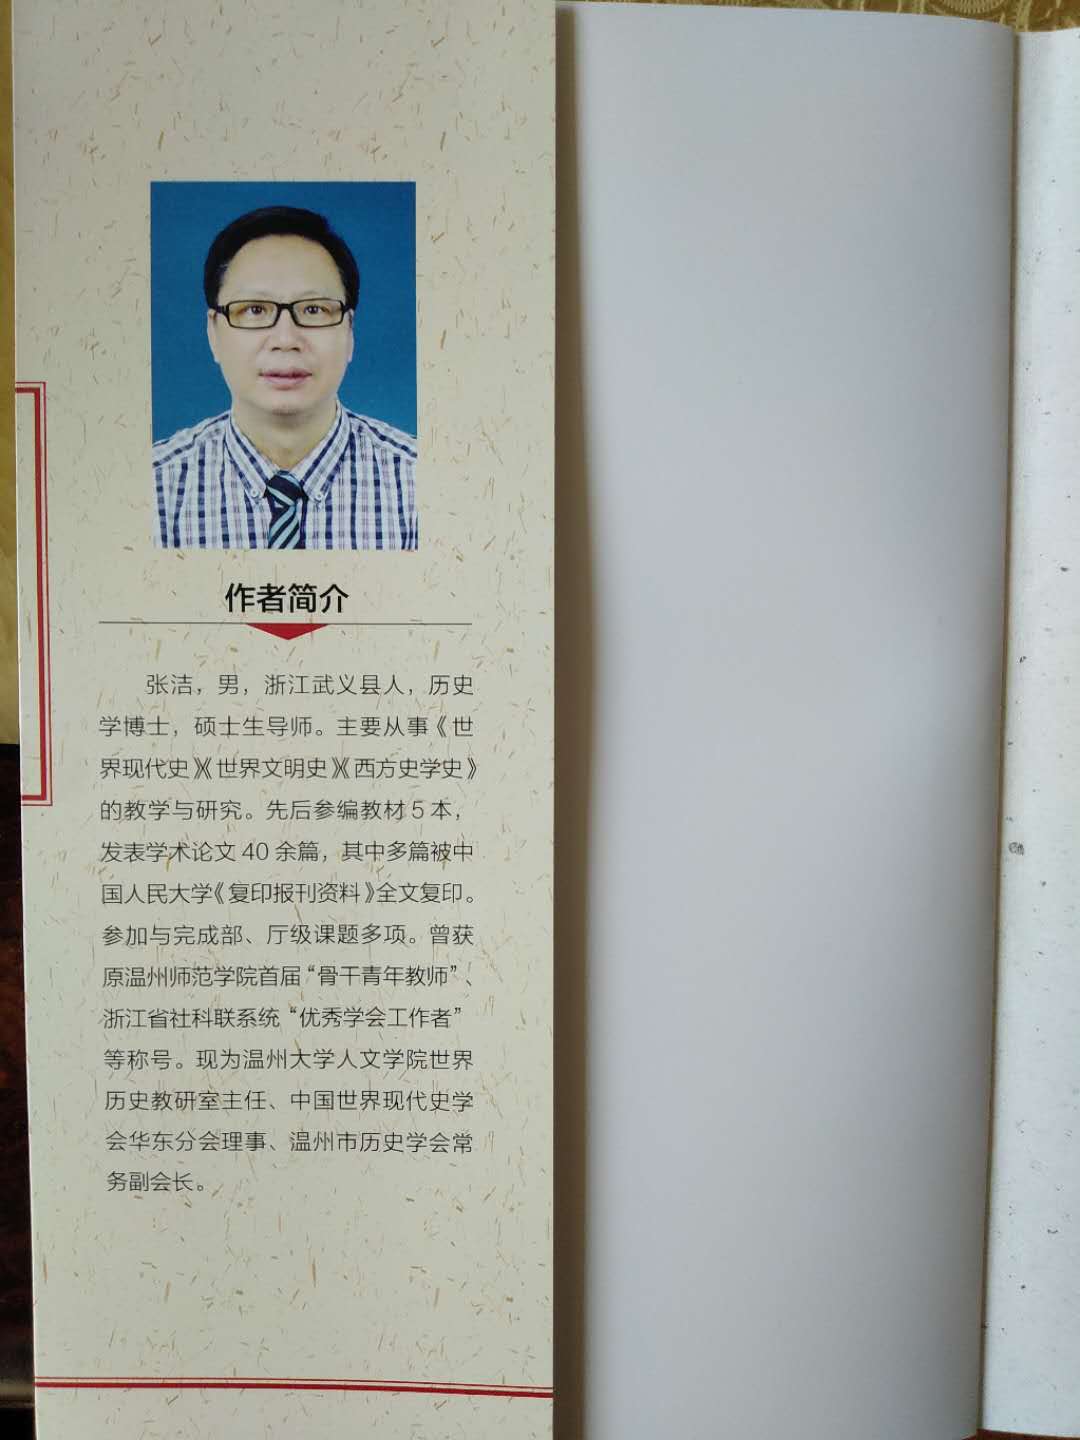 作者简介
张洁，男，浙江武义县人，历史
学博士，硕士生导师。主要从事《世
界现代史》《世界文明史》《西方史学史》
的教学与研究。先后参编教材 5 本，
发表学术论文 40 余篇，其中多篇被中
国人民大学《复印报刊资料》全文复印。
参加与完成部、厅级课题多项。曾获
原温州师范学院首届“骨干青年教师”、
浙江省社科联系统“优秀学会工作者”
等称号。现为温州大学人文学院世界
历史教研室主任、中国世界现代史学
会华东分会理事、温州市历史学会常
务副会长。